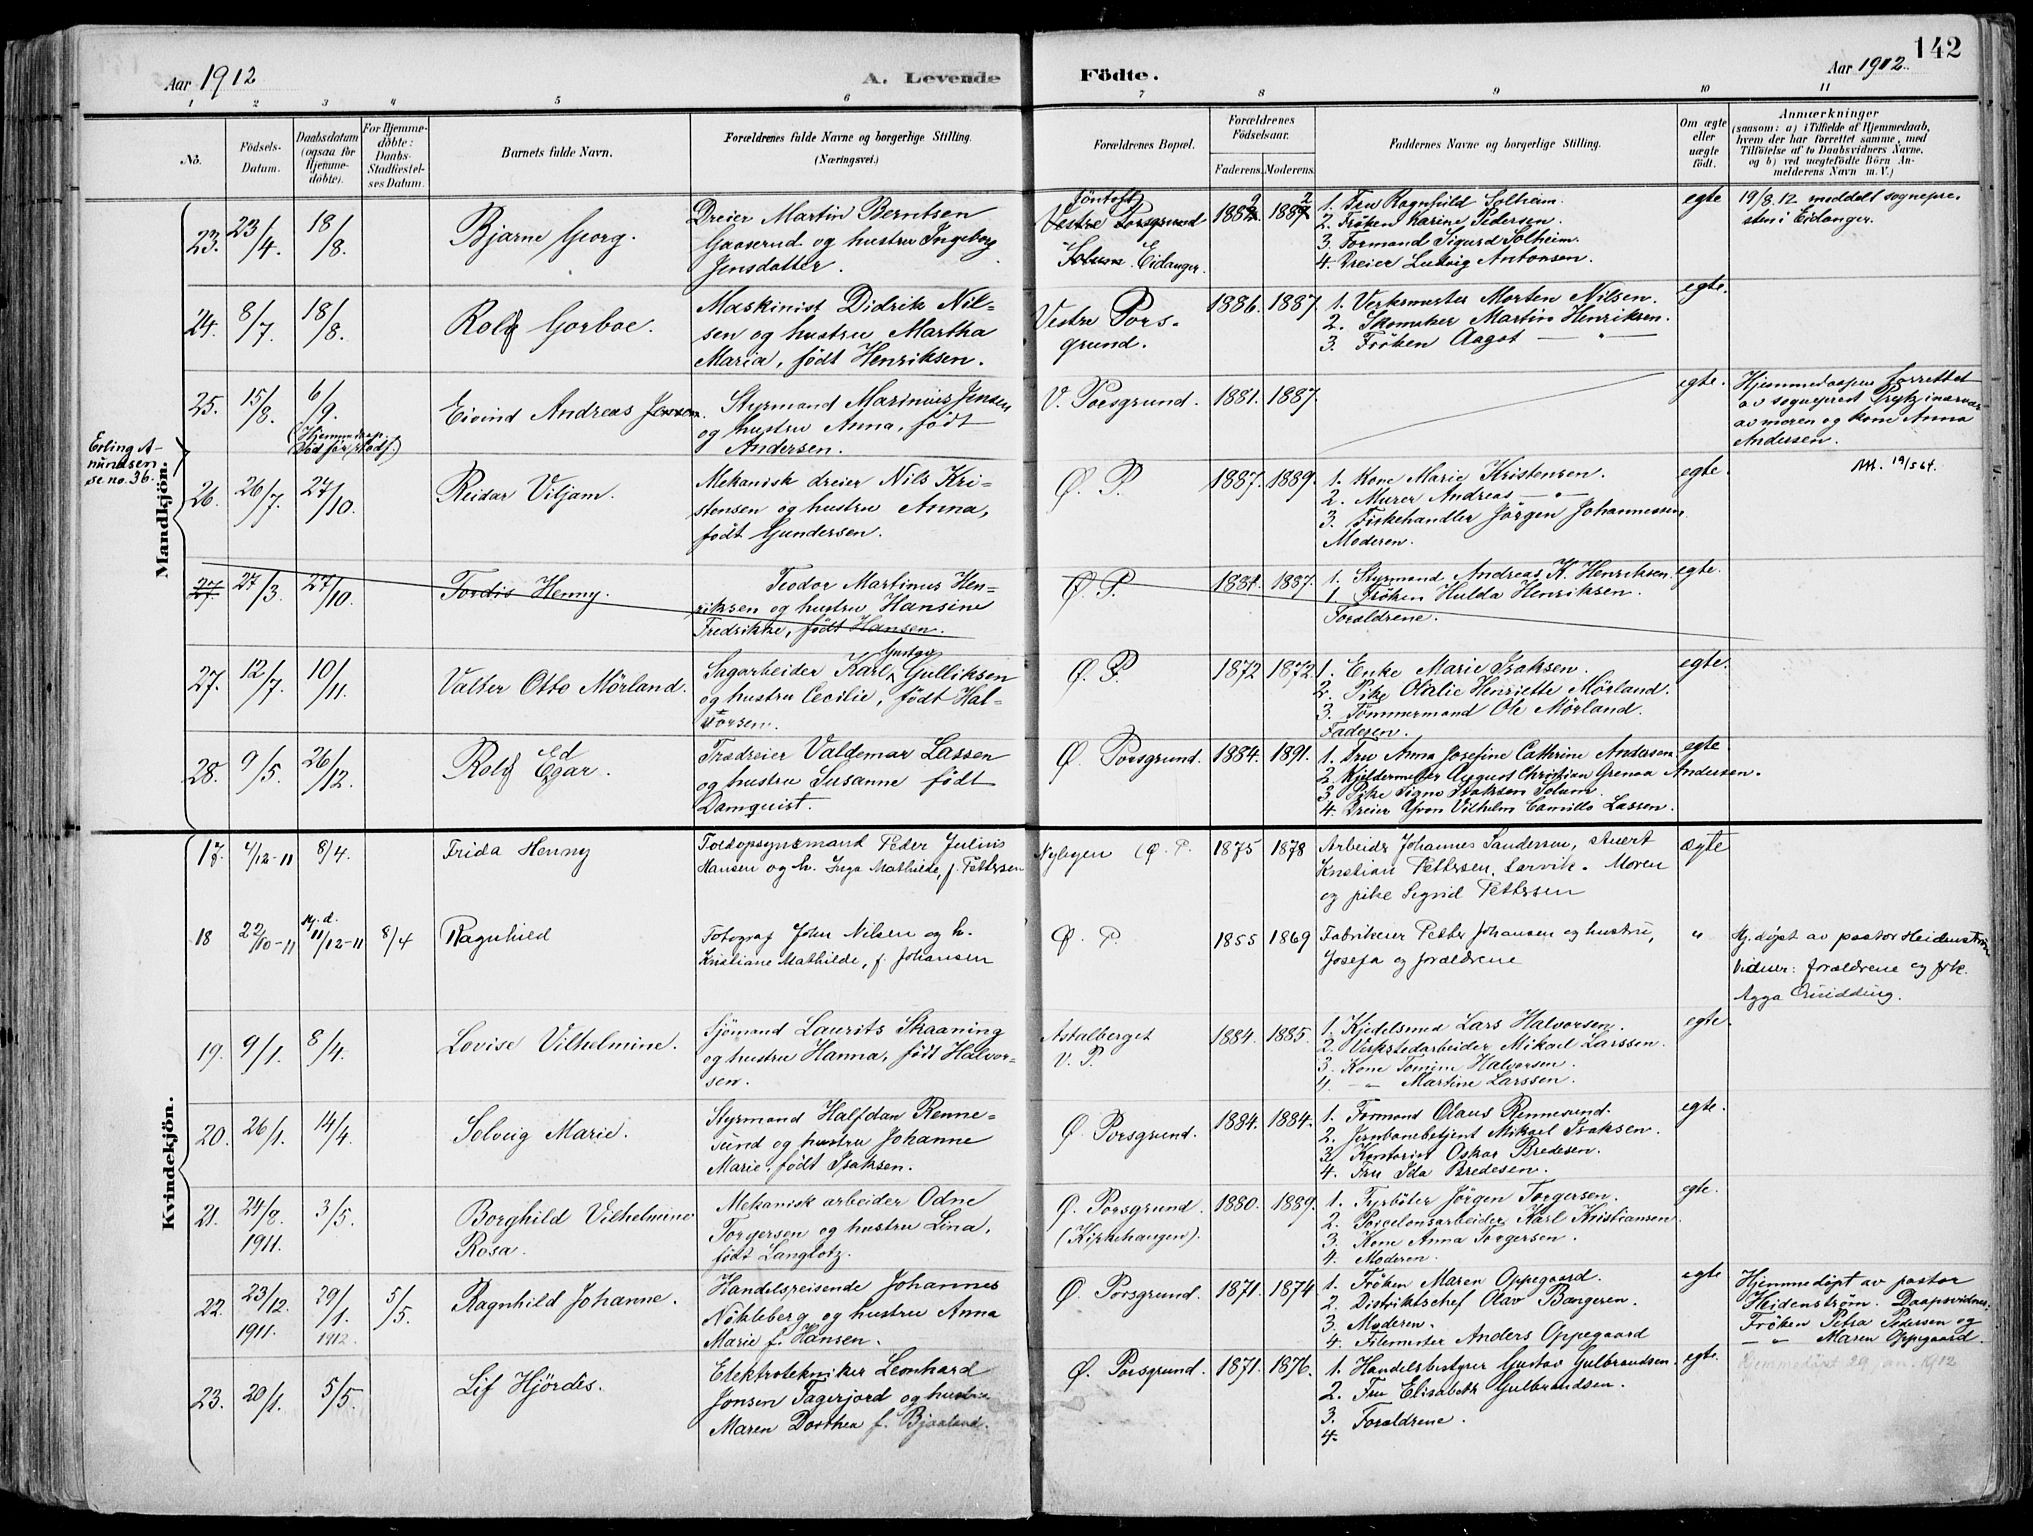 142
Aar 1912
A. Levende
Födte.
Aar 1912.
1 2 3 4 5 6 7 8 9 10 11
No.
Födsels-
Datum.
Daabsdatum
(ogsaa for
Hjemme-
döbte).
For Hjemme-
döbte:
Daabs-
Stadfæstel-
ses Datum.
Barnets fulde Navn.
Forældrenes fulde Navne og borgerlige Stilling.
(Næringsvei.)
Forældrenes Bopæl.
Forældrenes
Födselsaar.
Faderens. Moderens.
Faddernes Navne og borgerlige Stilling.
Om ægte
eller
uægte
födt.
Anmærkninger
(saasom: a) i Tilfælde af Hjemmedaab,
hvem der har forrettet samme, med
Tilföielse af to Daabsvidners Navne,
og b) ved uægtefödte Börn An-
melderens Navn m. V.)
Mandkjön.
Erling A-
mundsen
se no. 36.
23. 23/4. 18/8. Bjarne Georg.
Dreier Martin Berntsen
Gaaserud og hustru Ingeborg
Jensdatter.
Vestre Porsgrund
Solum. Eidanger.
1. Fru Ragnhild Solheim.
2. Fröken Karine Pedersen.
3. Formand Sigurd Solheim.
4. Dreier Ludvig Antonsen.
egte
19/8.12 meddelt sognepre-
sten i Eidanger.
24. 8/7. 18/8. Rolf Gorboe.
Maskinist Didrik Nil-
sen og hustru Martha
Maria, født Henriksen.
Vestre Pors-
grund.
1886. 1887.
1. Verksmester Morten Nilsen.
2. Skomaker Martin Henriksen.
3. Fröken Aagot — " —
egte.
25. 15/8. 6/9.
(Hjemmedaap.
Död før stadf.)
Eivind Andreas Jensen.
Styrmand Marinius Jensen
og hustru Anna, født
Andersen.
V. Porsgrund. 1881. 1887.
egte.
Hjemmedaapen forrettet
av sogneprest Prytz i nærvær
av moren og kone Anna
Andersen.
26. 26/7. 27/10. Reidar Viljam.
Mekanisk dreier Nils Kri-
stensen og hustru Anna,
født Gundersen.
Ø. P. 1887. 1889.
1. Kone Marie Kristensen.
2. Murer Andreas — " —
3. Fiskehandler Jörgen Johannessen
Moderen.
egte.
19/5 64.
27. 27/3. 27/10. Tordis Henny.
Teodor Martinus Hen-
riksen og hustru Hansine
Fredrikke, født Hansen.
Ø. P. 1881. 1887.
1. Styrmand Andreas K. Henriksen.
1. Fröken Hulda Henriksen.
Forældrene.
egte.
27. 12/7. 10/11. Valter Otto Mörland.
Gustav
Sagarbeider Karl Gulliksen
og hustru Cecilie, født Hal-
vorsen.
Ø. P. 1872 1872.
1. Enke Marie Isaksen.
2. Pike Otalie Henriette Mörland.
3. Tömmermand Ole Mörland.
Faderen.
egte.
28. 9/5. 26/12. Rolf Edgar.
Trædreier Valdemar Lassen
og hustru Susanne født
Damquist.
Ø. Porsgrund. 1884. 1891.
1. Fru Anna Josefine Cathrine Andersen
2. Kjeldermester August Christian Grenaa Andersen.
3. Pike Signe Isaksen Solum.
4. Dreier Yvon Vilhelm Camillo Lassen.
egte
Kvindekjön.
17. 4/12-11 8/4. Frida Henny
Toldopsynsmand Peder Julius
Hansen og h. Inga Mathilde, f. Pettersen
Nybyen (Ø. P. 1875 1878
Arbeider Johannes Sandersen, stuert
Kristian Pettersen, Larvik. Moren
og pike Sigrid Pettersen
ægte
18 22/10-11 Hj.d. 11/12-11 8/4 Ragnhild
Fotograf John Nilsen og h.
Kristiane Mathilde, f. Johansen
Ø. P. 1855 1869
Fabrikeier Petter Johansen og hustru,
Josefa og forældrene
"
Hj.døpt av pastor Heidenstrøm
Vidner: forældrene og frk.
Agga Qvidding.
19. 9/1. 8/4. Lovise Vilhelmine.
Sjömand Laurits Skaaning
og hustru Hanna, født Halvor-
sen.
V. P.
1884. 1885.
1. Kjedelsmed Lars Halvorsen.
2. Verkstedarbeider Mikael Larssen.
3. Kone Tomine Halvorsen.
4. — " — Martine Larssen.
egte.
20. 26/1. 14/4. Solveig Marie.
Styrmand Halfdan Renne-
sund og hustru Johanne
Marie, født Isaksen.
Ø. Porsgrund. 1884. 1884.
1. Formand Olaus Rennesund.
2. Jernbanebetjent Mikael Isaksen.
3. Kontorist Oskar Bredesen.
4. Fru Ida Bredesen.
egte.
21. 24/8. 1911. 3/5. Borghild Vilhelmine
Rosa.
Mekanisk arbeider Odne
Torgersen og hustru Lina,
født Langlotz.
Ø. Porsgrund.
(Kirkehaugen).
1880. 1889.
1. Fyrböter Jörgen Torgersen.
2. Porcelænsarbeider Karl Kristiansen
3. Kone Anna Torgersen.
4. Moderen.
egte.
22. 23/12. 1911. 29/1. 1912. 5/5. Ragnhild Johanne.
Handelsreisende Johannes
Nökleberg og hustru Anna
Marie f. Hansen.
Ø. Porsgrund. 1871. 1874
1. Fröken Maren Oppegaard.
2. Distriktschef Olav Bangeren.
3. Moderen.
4. Filemester Anders Oppegaard
egte
Hjemmedöpt av pastor
Heidenström. Daapsvidner:
Fröken Petra Pedersen og
— " — Maren Oppegaard
Hjemmedöpt 29 jan. 1912
23. 20/1. 5/5. Lif Hjördis.
Elektrotekniker Leonhard
Jensen Fagerjord og hustru
Maren Dorthea f. Bjaaland.
Ø. Porsgrund. 1871. 1876.
1. Handelsbestyrer Gustav Gulbrandsen.
2. Fru Elisabeth Gulbrandsen.
3. Forældrene.
4.
egte.